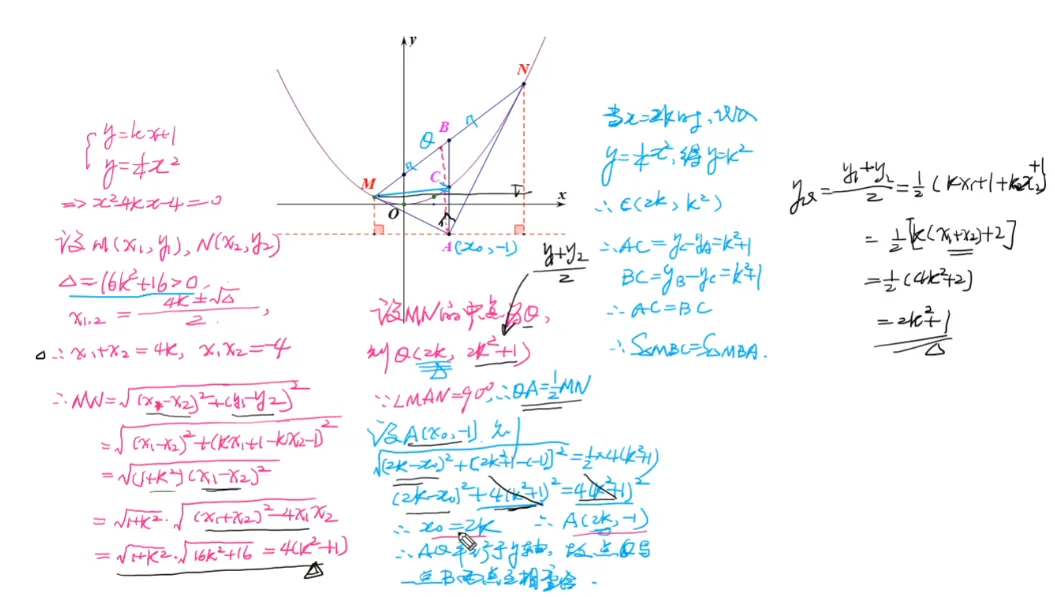 y
N
B
Q
C
M
O
x
A(x₀,-1)
{ y=kx+1
y=¼x²
=> x²-4kx-4=0
设M(x₁,y₁), N(x₂,y₂)
Δ=16k²+16>0
x₁,₂ = (4k±√Δ)/2,
∴x₁+x₂=4k, x₁x₂=-4
∴MN=√((x₁-x₂)²+(y₁-y₂)²)
=√((x₁-x₂)²+(kx₁+1-kx₂-1)²)
=√((1+k²)(x₁-x₂)²)
=√(1+k²)·√((x₁+x₂)²-4x₁x₂)
=√(1+k²)·√(16k²+16)=4(k²+1)
(y₁+y₂)/2
设MN的中点为Q,
则Q(2k, 2k²+1)
∵∠MAN=90°,∴QA=½MN
设A(x₀,-1).则
√((2k-x₀)²+[2k²+1-(-1)]²)=½×4(k²+1)
(2k-x₀)²+4(k²+1)²=4(k²+1)²
∴x₀=2k ∴A(2k,-1)
∴AQ平行于y轴,故点Q与
点B两点互相重合.
当x=2k时,
y=¼x²,得y=k²
∴C(2k, k²)
∴AC=y_C-y_A=k²+1
BC=y_B-y_C=k²+1
∴AC=BC
∴S△MBC=S△MBA.
y_Q=(y₁+y₂)/2=½(kx₁+1+kx₂+1)
=½[k(x₁+x₂)+2]
=½(4k²+2)
=2k²+1